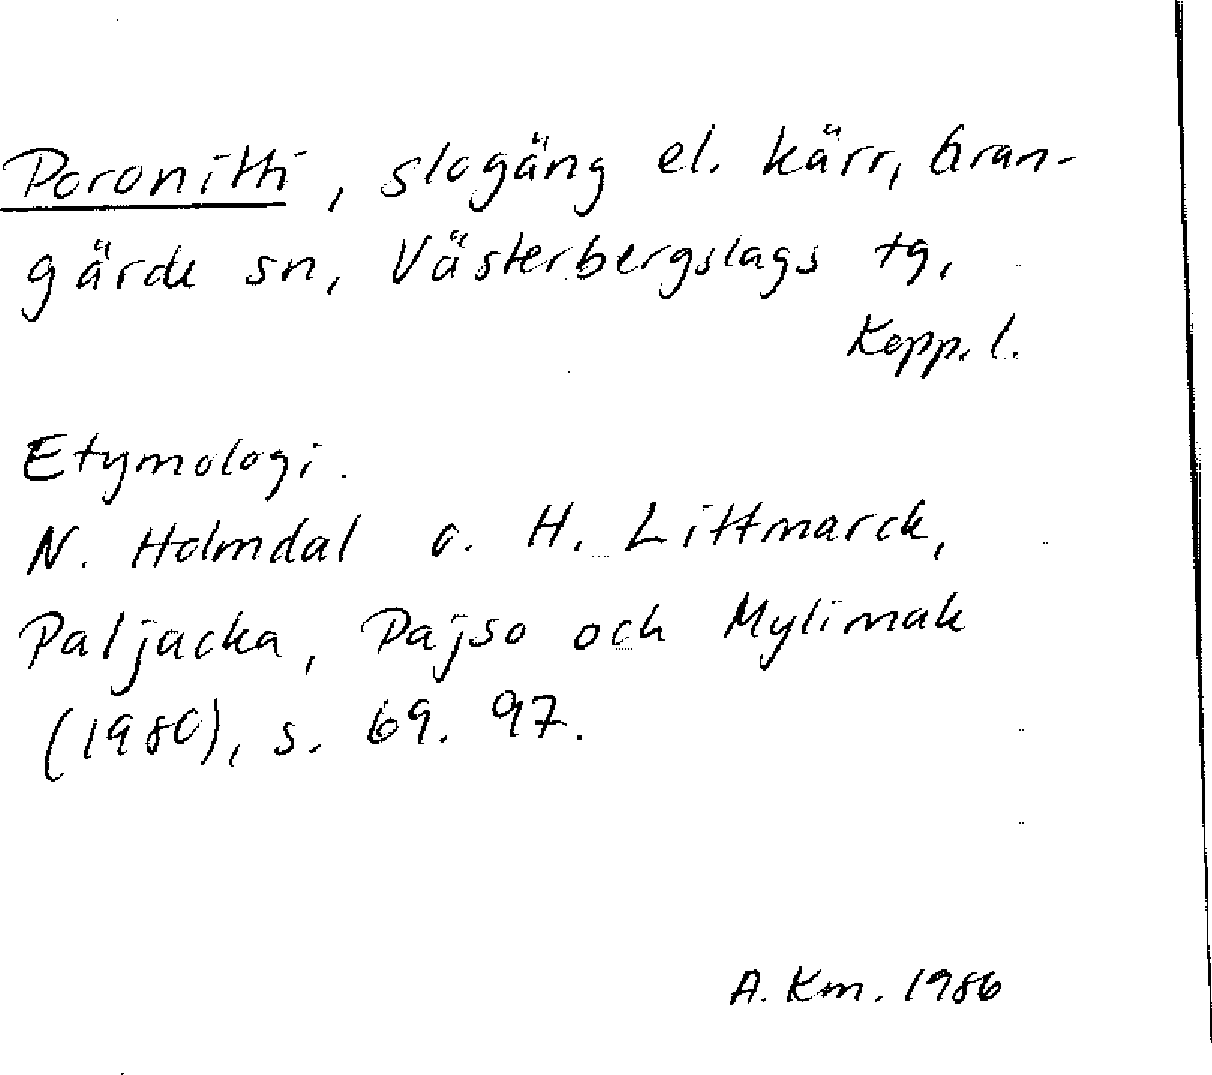 Poronitti, slogäng el. kärr, Gran-
gärde sn, Västerbergslags tg,
Kopp. l.
Etymologi.
N. Holmdal o. H. Littmarck,
Paljacka, Pajso och Mylimak
(1980), s. 69. 97.
A. Km. 1986